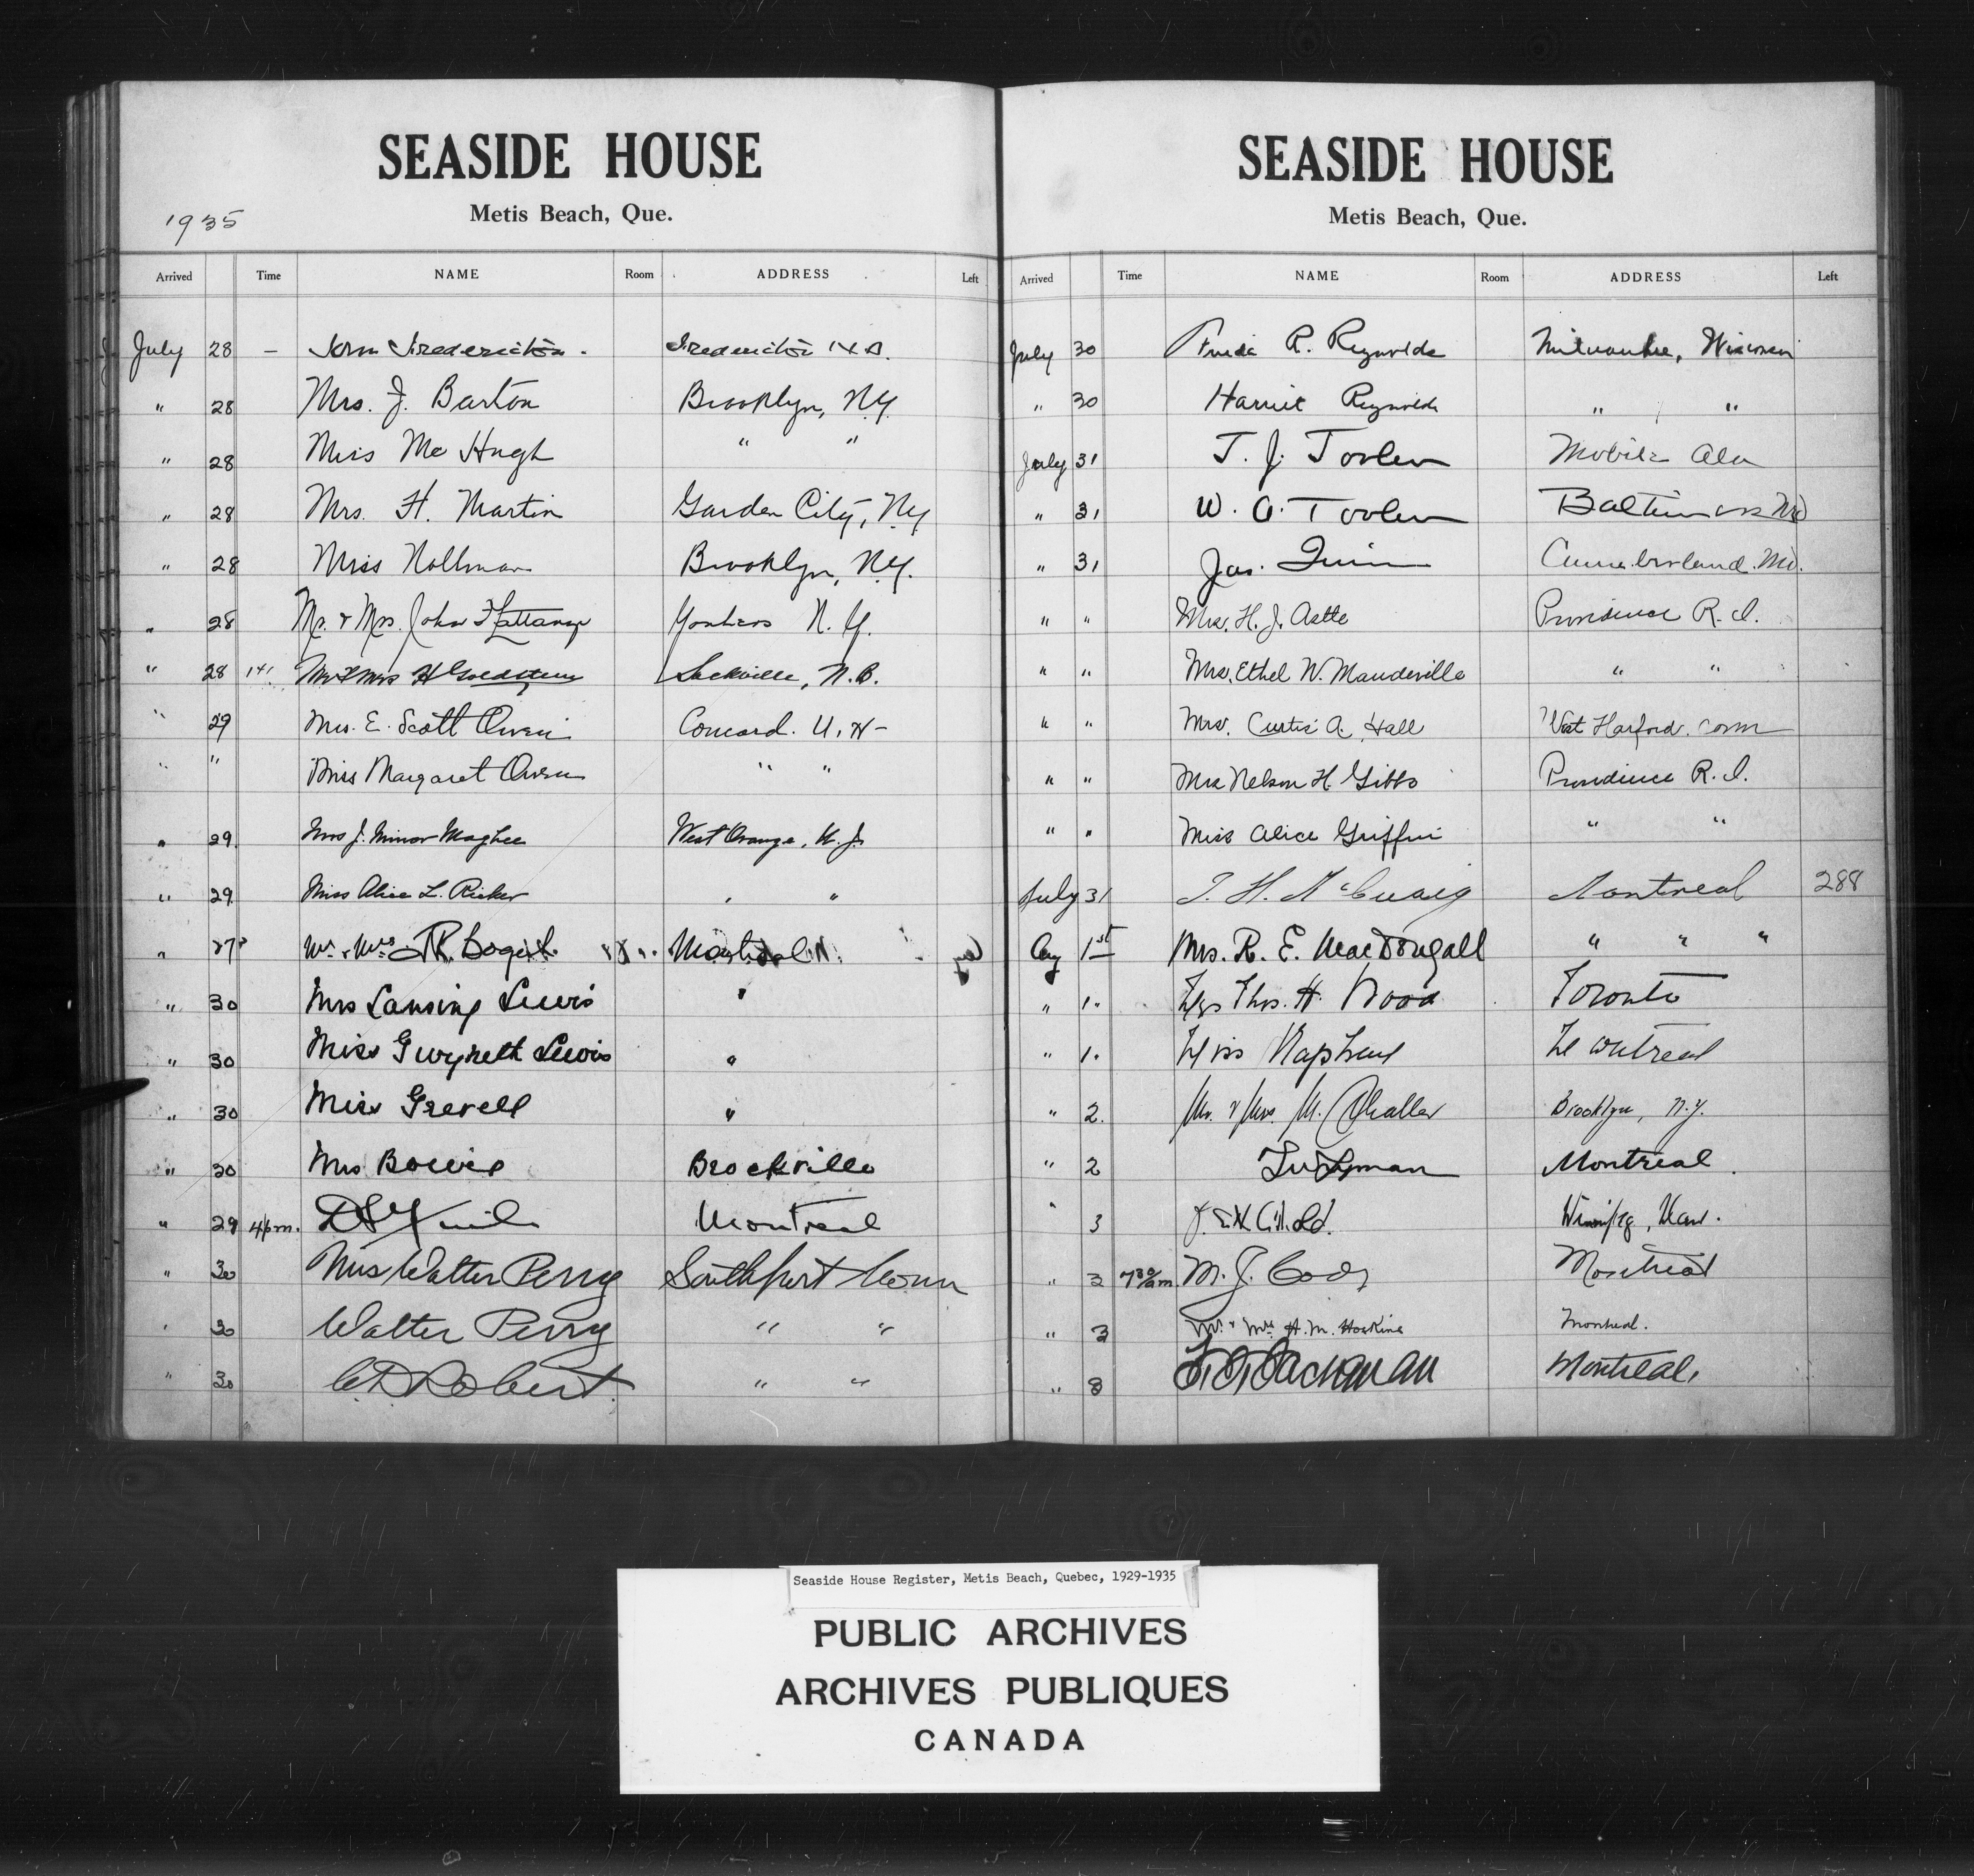 SEASIDE HOUSE
Metis Beach, Que.
1935
Arrived Time NAME Room ADDRESS Left
July 28 –
" 28 Mrs. J. Barton Brooklyn, N.Y.
" 28 Miss Mc Hugh " "
" 28 Mrs. H. Martin Garden City, NY
" 28 Miss Brooklyn, N.Y.
" 28 Mr. & Mrs. John Yonkers N.Y.
" 28 Mr & Mrs H Goldstein Sackville, N.B.
" 29 Mrs. E. Scott Owen Concord. N. H–
" " Miss Margaret Owen " "
" 29. Mrs J. Minor Maghee West Orange, N. J.
" 29. Miss Alice L. Ricker " "
" Mr. & Mrs. Bogert
" 30 Mrs Lansing Lewis "
" 30 Miss Gwyneth Lewis "
" 30 Miss Grevell "
" 30 Mrs Bowie Brockville
" 29 4 p.m. Montreal
" 30 Mrs Walter Perry Southport Conn
" 30 Walter Perry " "
" 30 Robert " "
SEASIDE HOUSE
Metis Beach, Que.
Arrived Time NAME Room ADDRESS Left
July 30 R. Reynolds Milwaukee, Wisconsin
" 30 Harriet Reynolds " "
July 31 T. J. Toolen Mobile Ala
" 31 W. A. Toolen Baltimore Md
" 31 Jas. Quinn Cumberland. Md.
" " Mrs. H. J. Astle Providence R. I.
" " Mrs. Ethel W. Mandeville " "
" " Mrs. Curtis A. Hall West Harford. Conn
" " Mrs Nelson H. Gibbs Providence R. I.
" " Miss Alice Griffin " "
July 31 McCuaig Montreal 288
Aug 1st Mrs. R. E. MacDougall " " "
" 1. Mrs Thos. H. Wood Toronto
" 1. Miss Montreal
" 2. Mr. & Mrs. M. Brooklyn, N.Y.
" 2 Montreal.
" 3 Winnipeg, Man.
" 3 7 30 am. M. J. Cody Montreal
" 3 Mr. & Mrs H. M. Hoskins Montreal.
" 8 Montreal.
Seaside House Register, Metis Beach, Quebec, 1929-1935
PUBLIC ARCHIVES
ARCHIVES PUBLIQUES
CANADA